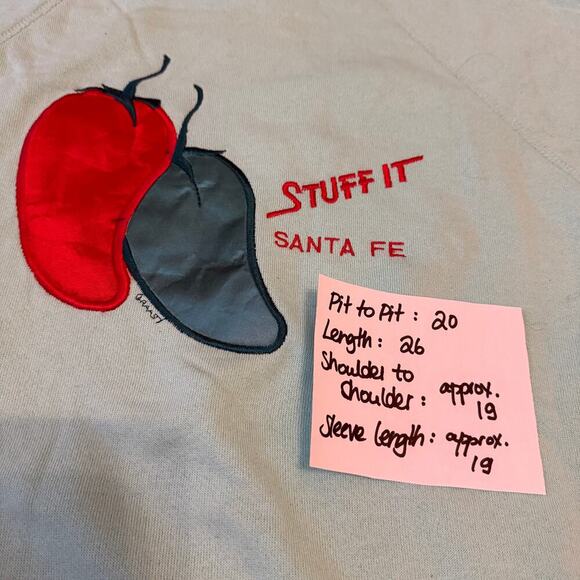 STUFF IT
SANTA FE
Pit to Pit : 20
Length : 26
Shoulder to
Choulder : approx.
19
Sleeve length : approx.
19